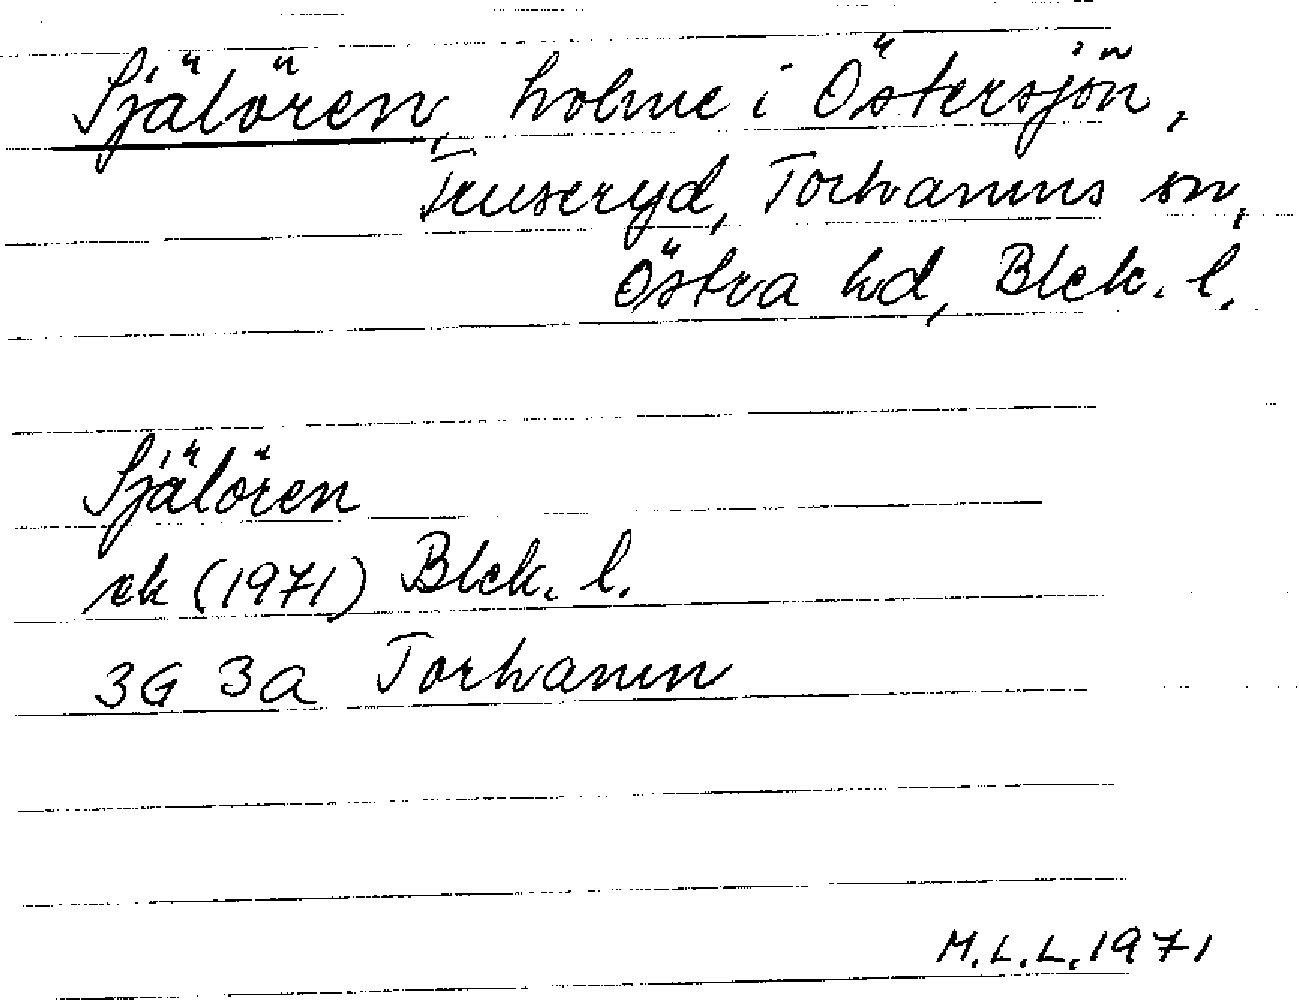 Själören, holme i Östersjön,
Truseryd, Torhamns sn,
Östra hd, Blek. l.
Själören
ek (1971) Blek. l.
3G 3a Torhamn
M.L.L. 1971